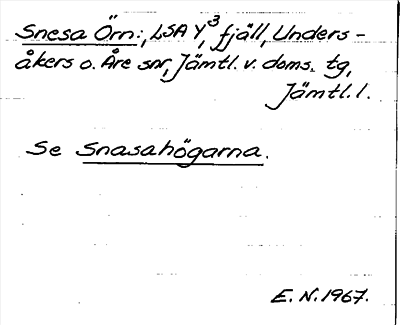 Snesa Örn:, LSA Y³, fjäll, Unders-
åkers o. Åre snr, Jämtl. v. doms. tg,
Jämtl. l.
Se Snasahögarna.
E. N. 1967.